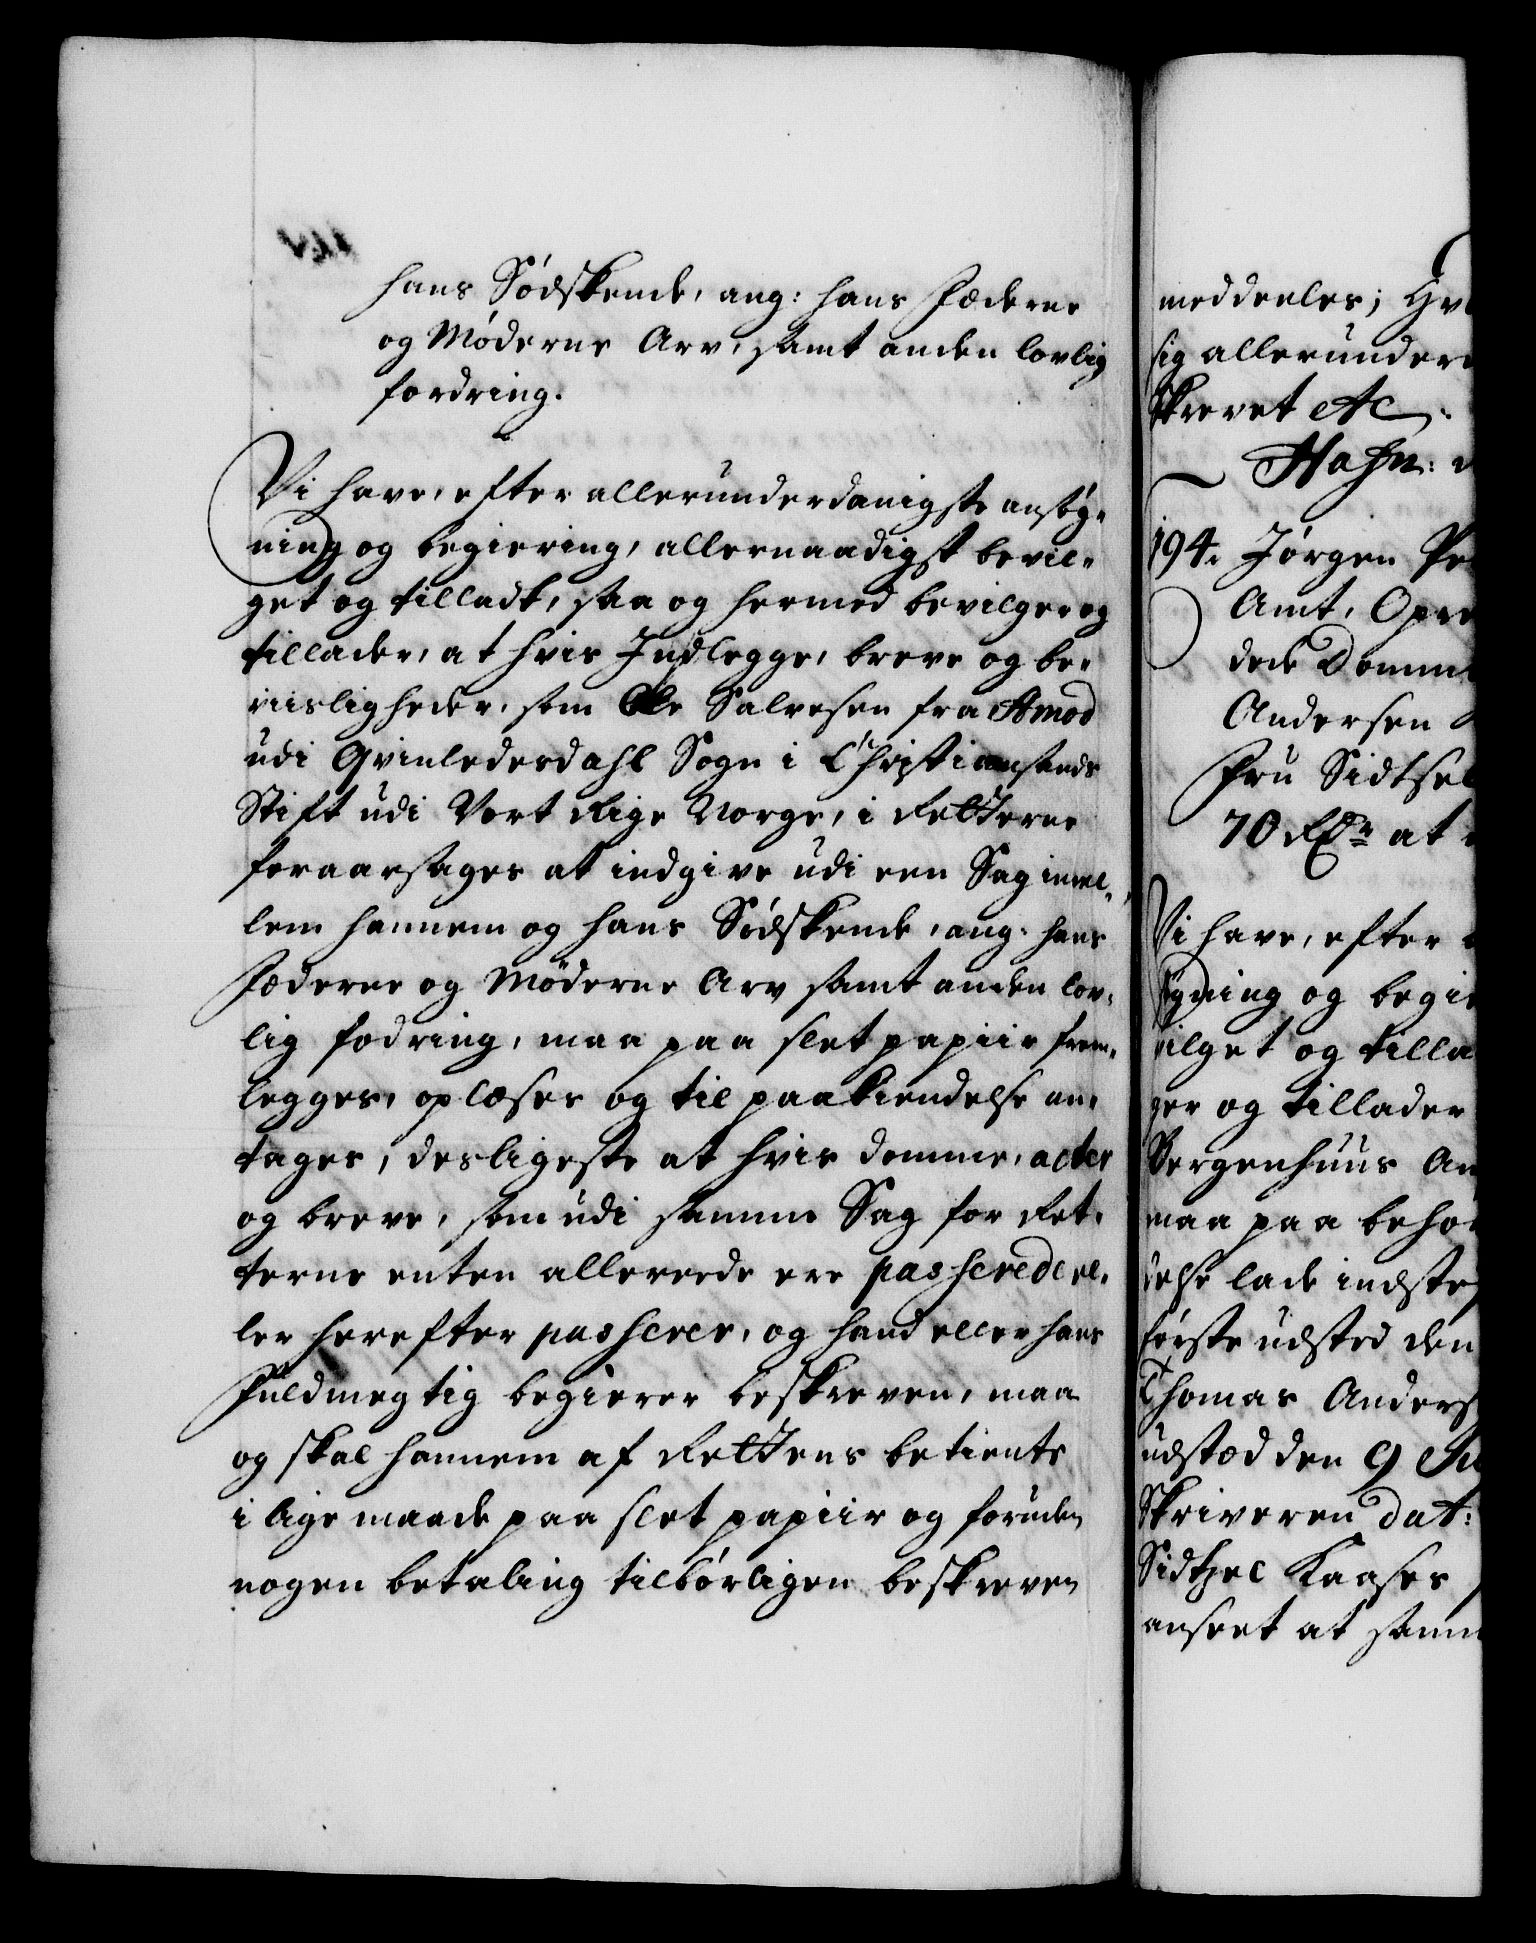 hans Södskende, ang: hans Fæderne
og Möderne Arv, samt anden lovlig
fordring.
Vi have, efter allerunderdanigste ansög-
ning og begiering, allernaadigst bevil-
get og tilladt, saa og hermed bevilger og
tillader, at hvis Indlegge, breve og be-
viisligheder, som Ole Salvesen fra Amod
udi Qvinlededahl Sogn i Christiansands
Stift udi Vort Rige Norge, i Retterne
foraarsages at indgive udi een Sag imel-
lem hannem og hans Södskende, ang: hans
Fæderne og Möderne Arv samt anden lov-
lig fodring, maa paa slet papiir frem-
legges, oplæses og til paakiendelse an-
tages, desligeste at hvis domme, acter
og breve, som udi samme Sag for Ret-
terne enten allereede ere passerede el-
ler herefter passerer, og hand eller hans
Fuldmegtig begierer beskreven, maa
og skal hannem af Rettens betiente
i lige maade paa slet papiir og foruden
nogen betaling tilbörligen beskreven
meddeeles; Hv
sig allerunder
skrevet etc.
Hafn:
194. Jörgen Pe
Amt, Opre
dede Domm
Andersen
Fru Sidtsel
70 Rdr at
Vi have, efter
sögning og begie
vilget og tilla
ger og tillader
Bergenhuus Am
maa paa beho
delse lade indste
förste udsted den
Thomas Anders
udstæd den 9 Ju
Skriveren dat:
Sidtzel Kaases
anseet at samm